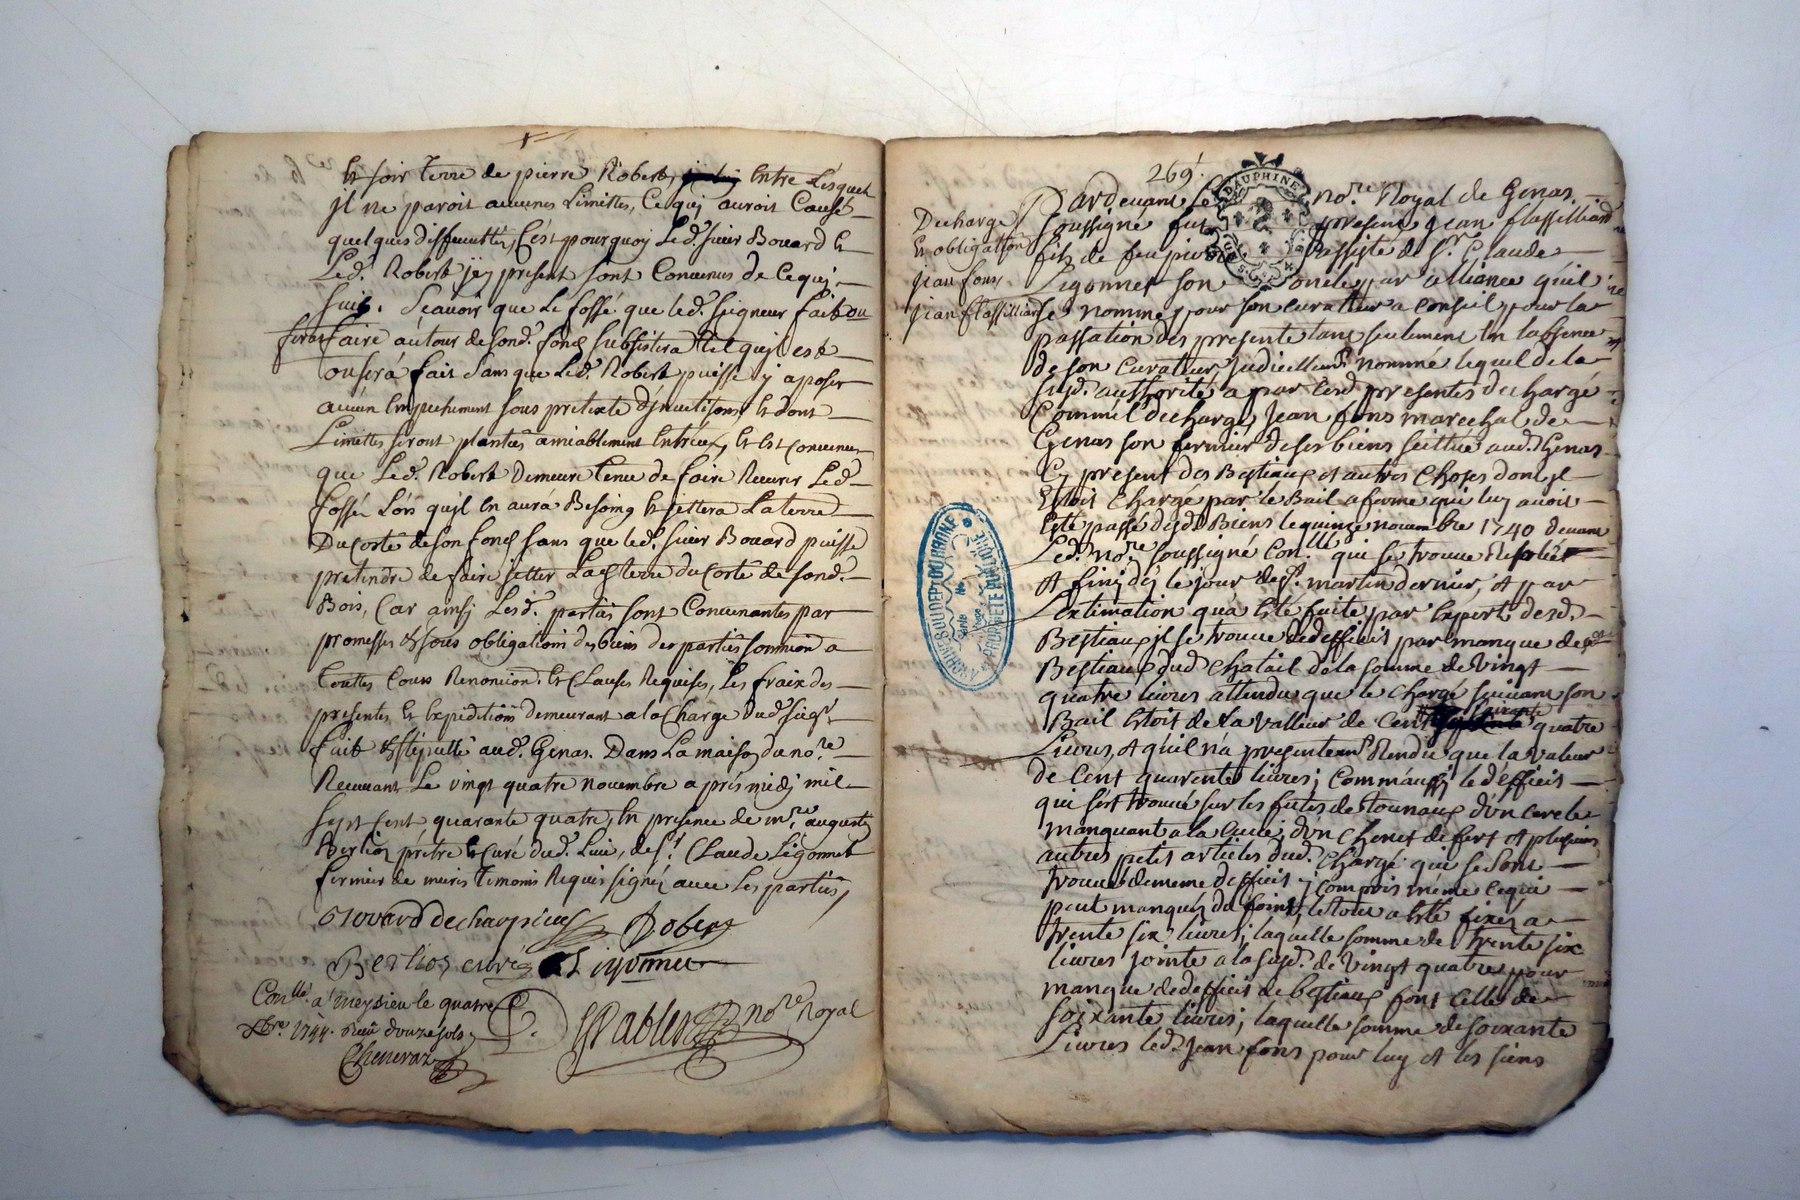 et soir terre de pierre Robert, entre Lesquels
jl ne paroit aucunes Limittes, Ce quj auroit Causé
quelques difficultés, C'est pourquoy Led. sieur Bouard et
Led. Robert jcy present sont Convenus de Ce quj
suit. Scavoir que Le fossé que led. seigneur fait ou
fera faire autour de sond. fond subsistera tel quj est
ou sera fait sans que Led. Robert puisse y aposer
aucun Empechement sous pretexte et dont
Limittes seront plantées amiablement Entr'eux, et est convenus
que Led. Robert Demeure tenu de faire Recurer Led.
fossé Lors qu'jl En aura Besoing et jettera La terre
Du Corté de son fond sans que led. sieur Bouard puisse
pretendre de faire jetter Lad. terre du Corté de sond.
Bois, Car ainsj Lesd. parties sont Convenantes par
promesses & sous obligations des biens des parties
touttes Cours Renonciond. et Clauses Requises, Les fraix des
presentes et Expeditions demeurant a la Charge Dud. sieur
fait & stipullé aud. Genas. Dans La maison du no.re
Recevant Le vingt quatre novembre apres midj mil
sept cent quarante quatre, En presence de m.re auguste
Berlioz prêtre et Curé dud. Lieu, de s.r Claude Ligonnet
fermier de meris temoins Requis signés avec Les parties,
Bouard de charpieux Robert
Berlioz curé Ligonnet
Con.llé a meysieu le quatre
Xbre 1744. Reçu douze sols
Chenevaz
no.re Royal
269.
Decharge
et obligation
jean fons
jean flassilliard
Pardevant Le no.re Royal de Genas
soussigné fut present jean flassilliard
DAUPHINE
fils de feu pierre assisté de S.r Claude
Ligonnet son oncle par alliance qu'il
nommé pour son curateur a conseil pour la
passation des presente tant seulement En labsence
de son Curateur judiciellem.t nommé lequel de la
susd. authorité a par lesd. presentes dechargé
Comm'il decharge Jean fons marechal de
Genas son fermier de ses biens scittué aud. Genas
Cy present des Bestiaux et autres choses dont jl
Estoit Chargé par le Bail a ferme qui luy avoit
Esté passé desd. Biens le quinze novembre 1740 devant
Led. no.re soussigné Con.llé qui se trouve
et finj dés le jour de s.t martin dernier, et par
L'extimation qu'a Eté faite par Expert desd.
Bestiaux jl se trouve de defficit par manque de
Bestiaux dud. Chatail de la somme de vingt
quatre livres attendu que le chargé suivant son
Bail Etoit de la valleur de Cent soixante quatre
Livres, et qu'il n'a presentem.t Rendu que la valeur
de Cent quarente livres; Comm'aussj le defficit
qui s'est trouvé sur les futes de tounaux d'un cercle
manquant a la Cuve, d'un Chenet de fert et plusieurs
autres petis articles dud. chargé qui se sont
trouvé de meme defficit y compris même ce qui
peut manquer du foint, le tout a Eté fixés a
trente six livres; laquelle somme de trente six
livres jointe a la susd. de vingt quatre pour
manque de defficit de bestiaux font celle de
soixante livres; laquelle somme de soixante
Livres led. Jean fons pour luy et les siens
ARCHIVES DU DEPT DU RHONE
PROPRIETE PUBLIQUE